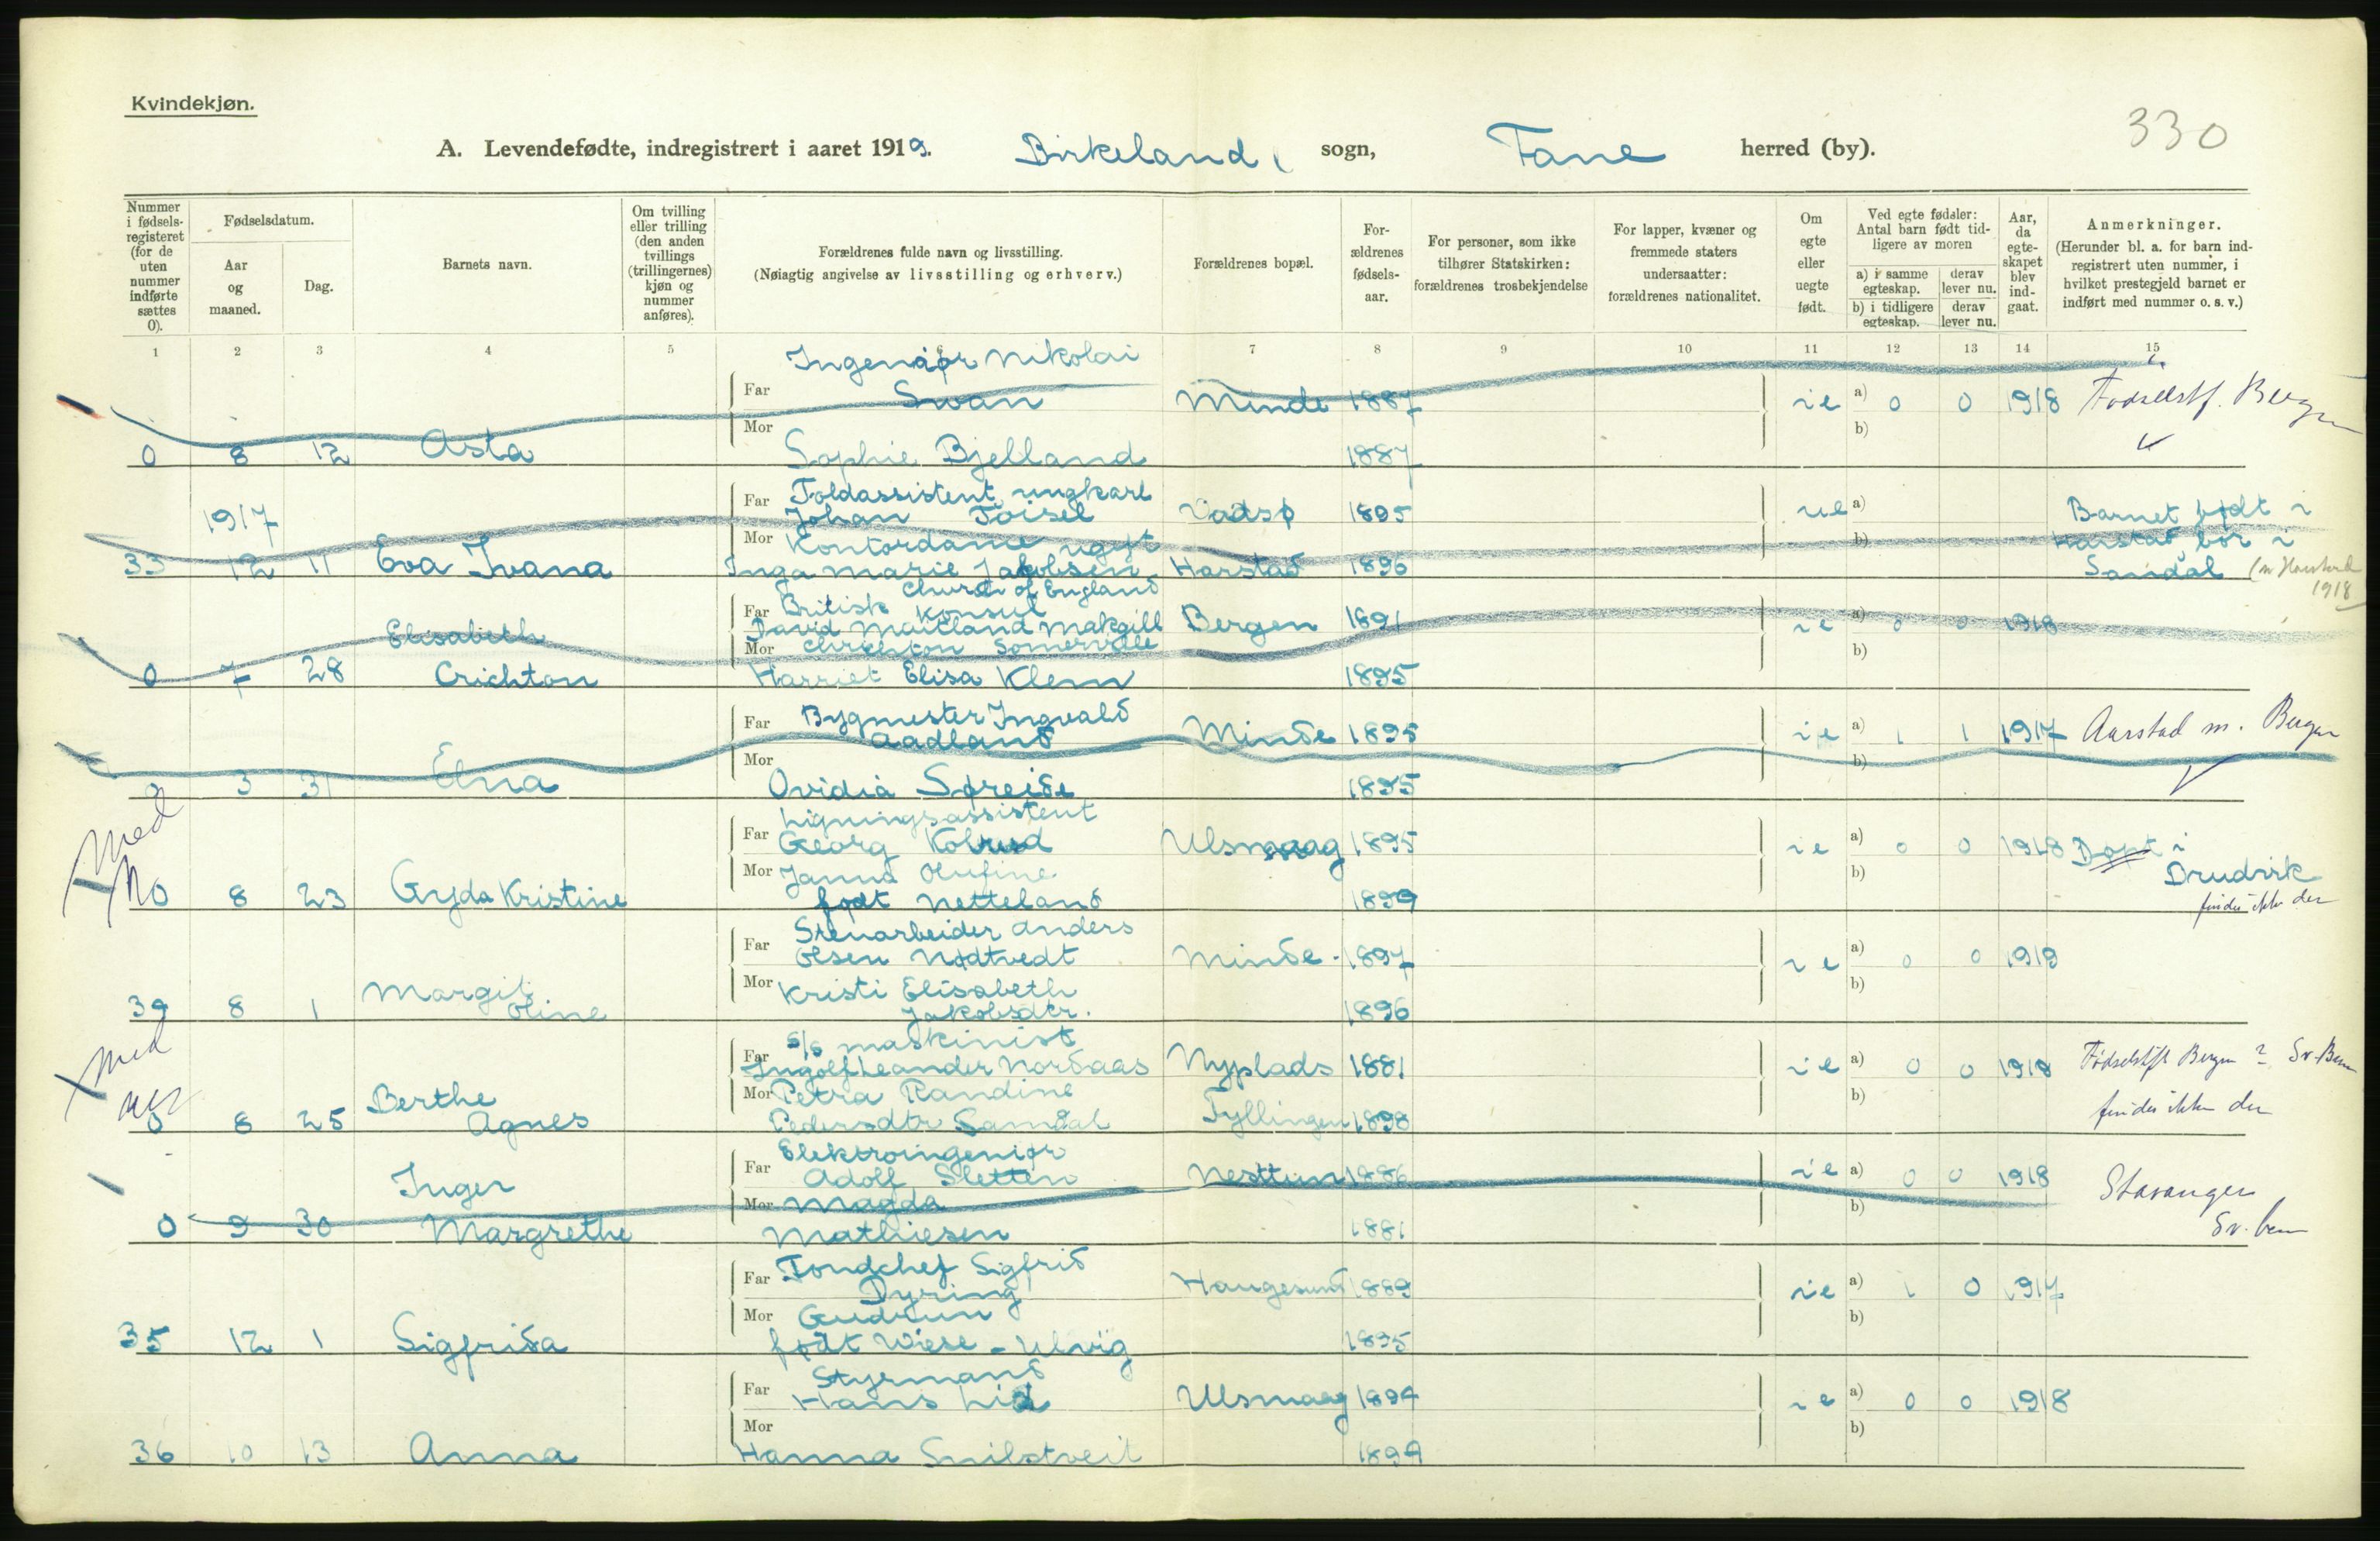 Kvindekjøn.
330
A. Levendefødte, indregistrert i aaret 1919. Birkeland, sogn, Fane herred (by).
Nummer i fødsels-registeret (for de uten nummer indførte sættes 0).
Fødselsdatum.
Aar og maaned.
Dag.
Barnets navn.
Om tvilling eller trilling (den anden tvillings (trillingernes) kjøn og nummer anføres).
Forældrenes fulde navn og livsstilling.
(Nøiagtig angivelse av livsstilling og erhverv.)
Forældrenes bopæl.
For-ældrenes fødsels-aar.
For personer, som ikke tilhører Statskirken: forældrenes trosbekjendelse
For lapper, kvæner og fremmede staters undersaatter: forældrenes nationalitet.
Om egte eller uegte født.
Ved egte fødsler: Antal barn født tid-ligere av moren
a) i samme egteskap.
derav lever nu.
b) i tidligere egteskap.
derav lever nu.
Aar, da egte-skapet blev ind-gaat.
Anmerkninger.
(Herunder bl. a. for barn ind-registrert uten nummer, i hvilket prestegjeld barnet er indført med nummer o. s. v.)
1 2 3 4 5 6 7 8 9 10 11 12 13 14 15
Ingeniør Nikolai
Far Svan Minde 1887 ie a) 0 0 1918 Fødselsst. Bergen
Mor b)
0 8 12 Asta Sophie Bjelland 1887
Far Toldassistent ungkarl
1917 Johan Toisel Vadsø 1895 ue a) Barnet født i
Mor Kontordame ugift b) Harstad, bor i
33 12 11 Eva Ivana Inga Marie Jakobsen Harstad 1896 Sandal (n Harstad 1918
Church of England
Far Britisk Konsul
David Maitland Makgill Bergen 1891 ie a) 0 0 1918
Elisabeth Mor Crichton Somerville b)
0 7 28 Crichton Harriet Elisa Klem 1895
Far Bygmester Ingvald
Aadland Minde 1895 ie a) 1 1 1917 Aarstad m. Bergen
Mor b)
0 3 31 Elna Ovidia Søreide 1895
Med Ligningsassistent
Far Georg Kolrud Ulsmaag 1895 ie a) 0 0 1918 Døpt i
Mor Janna Olufine b) Brudvik
No 0 8 23 Gyda Kristine født Netteland 1899 findes ikke der
Far Stenarbeider Anders
Olsen Nødtvedt Minde. 1897 ie a) 0 0 1919
Margit Mor Kristi Elisabeth b)
39 8 1 Oline Jakobsdtr. 1896
med s/s maskinist
Far Ingolf Leander Nordaas Nyplads 1881 ie a) 0 0 1918 Fødselsstift Bergen ? Sv. Ben
Berthe Mor Petra Randine b)
0 8 25 Agnes Pedersdtr Samdal Fyllingen 1898 findes ikke der
Elektroingeniør
Inger Far Adolf Sletten Nesttun 1886 ie a) 0 0 1918 Stavanger
Mor Magda b)
0 9 30 Margrethe Mathiesen 1881 Sv. ben
Far Fondchef Sigfrid
Dyring Haugesund 1889 ie a) 1 0 1917
Mor Gudrun b)
35 12 1 Sigfrida født Wiese - Ulvig 1895
Styrmand
Far Hans Lid Ulsmaag 1894 ie a) 0 0 1918
Mor b)
36 10 13 Anna Hanna Smilstveit 1899